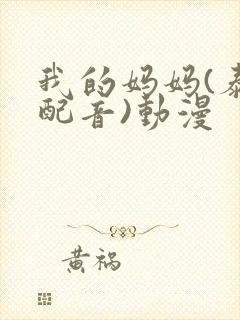 我的妈妈(泰
配音)動漫
黄祸